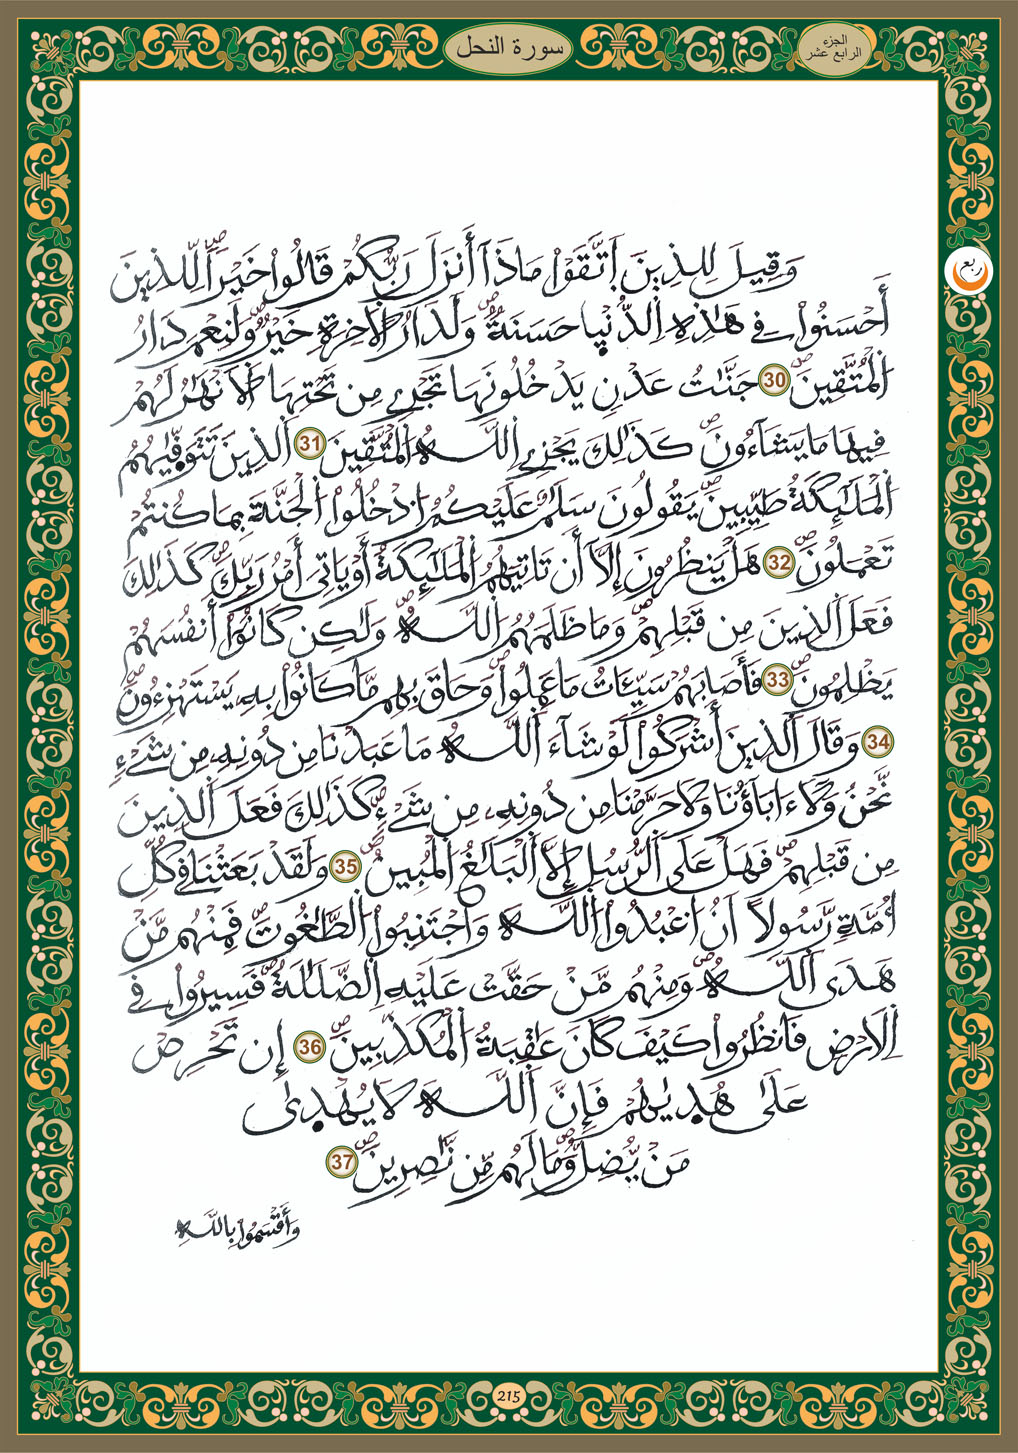 سورة النحل
الجزء
الرابع عشر
ربع
وَقِيلَ لِلذِينَ اَتَّقَوْاْ مَاذَآ أَنزَلَ رَبُّكُمْ قَالُواْ خَيْراٗ لِّلذِينَ
أَحْسَنُواْ فِے هَٰذِهِ اِلدُّنْيَا حَسَنَةٞ وَلَدَارُ اُ۬لَاخِرَةِ خَيْرٞ وَلَنِعْمَ دَارُ
اُ۬لْمُتَّقِينَ 30 جَنَّٰتُ عَدْنٖ يَدْخُلُونَهَا تَجْرِے مِن تَحْتِهَا اَ۬لَانْهَٰرُ لَهُمْ
فِيهَا مَا يَشَآءُونَ كَذَٰلِكَ يَجْزِے اِ۬للَّهُ اُ۬لْمُتَّقِينَ 31 اَ۬لذِينَ تَتَوَفّٰيهُمُ
اُ۬لْمَلَٰٓئِكَةُ طَيِّبِينَ يَقُولُونَ سَلَٰمٌ عَلَيْكُمُ اُ۟دْخُلُواْ اُ۬لْجَنَّةَ بِمَا كُنتُمْ
تَعْمَلُونَ 32 هَلْ يَنظُرُونَ إِلَّآ أَن تَاتِيَهُمُ اُ۬لْمَلَٰٓئِكَةُ أَوْ يَاتِيَ أَمْرُ رَبِّكَ كَذَٰلِكَ
فَعَلَ اَ۬لذِينَ مِن قَبْلِهِمْ وَمَا ظَلَمَهُمُ اُ۬للَّهُ وَلَٰكِن كَانُوٓاْ أَنفُسَهُمْ
يَظْلِمُونَ 33 فَأَصَابَهُمْ سَيِّـَٔاتُ مَا عَمِلُواْ وَحَاقَ بِهِم مَّا كَانُواْ بِهِۦ يَسْتَهْزِءُونَ
34 وَقَالَ اَ۬لذِينَ أَشْرَكُواْ لَوْ شَآءَ اَ۬للَّهُ مَا عَبَدْنَا مِن دُونِهِۦ مِن شَےْءٖ
نَّحْنُ وَلَآ ءَابَآؤُنَا وَلَا حَرَّمْنَا مِن دُونِهِۦ مِن شَےْءٖ كَذَٰلِكَ فَعَلَ اَ۬لذِينَ
مِن قَبْلِهِمْ فَهَلْ عَلَى اَ۬لرُّسُلِ إِلَّا اَ۬لْبَلَٰغُ اُ۬لْمُبِينُ 35 وَلَقَدْ بَعَثْنَا فِے كُلِّ
أُمَّةٖ رَّسُولاً اَنُ اُ۟عْبُدُواْ اُ۬للَّهَ وَاجْتَنِبُواْ اُ۬لطَّٰغُوتَ فَمِنْهُم مَّنْ
هَدَى اَ۬للَّهُ وَمِنْهُم مَّنْ حَقَّتْ عَلَيْهِ اِ۬لضَّلَٰلَةُ فَسِيرُواْ فِے
اِ۬لَارْضِ فَانظُرُواْ كَيْفَ كَانَ عَٰقِبَةُ اُ۬لْمُكَذِّبِينَ 36 إِن تَحْرِصْ
عَلَىٰ هُدٜيٰهُمْ فَإِنَّ اَ۬للَّهَ لَا يُهْدَىٰ
مَنْ يُّضِلُّ وَمَا لَهُم مِّن نَّٰصِرِينَ 37
وَأَقْسَمُواْ بِاللَّهِ
215